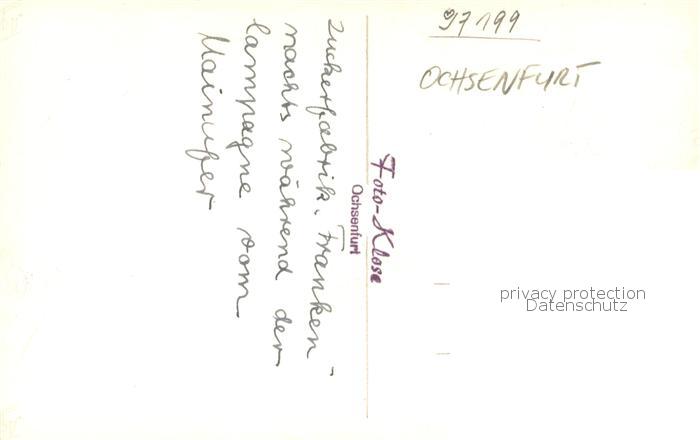 97199
OCHSENFURT
Zuckerfabrik „Franken"
nachts während der
Campagne vom
Mainufer
Foto-Klose
Ochsenfurt
privacy protection
Datenschutz